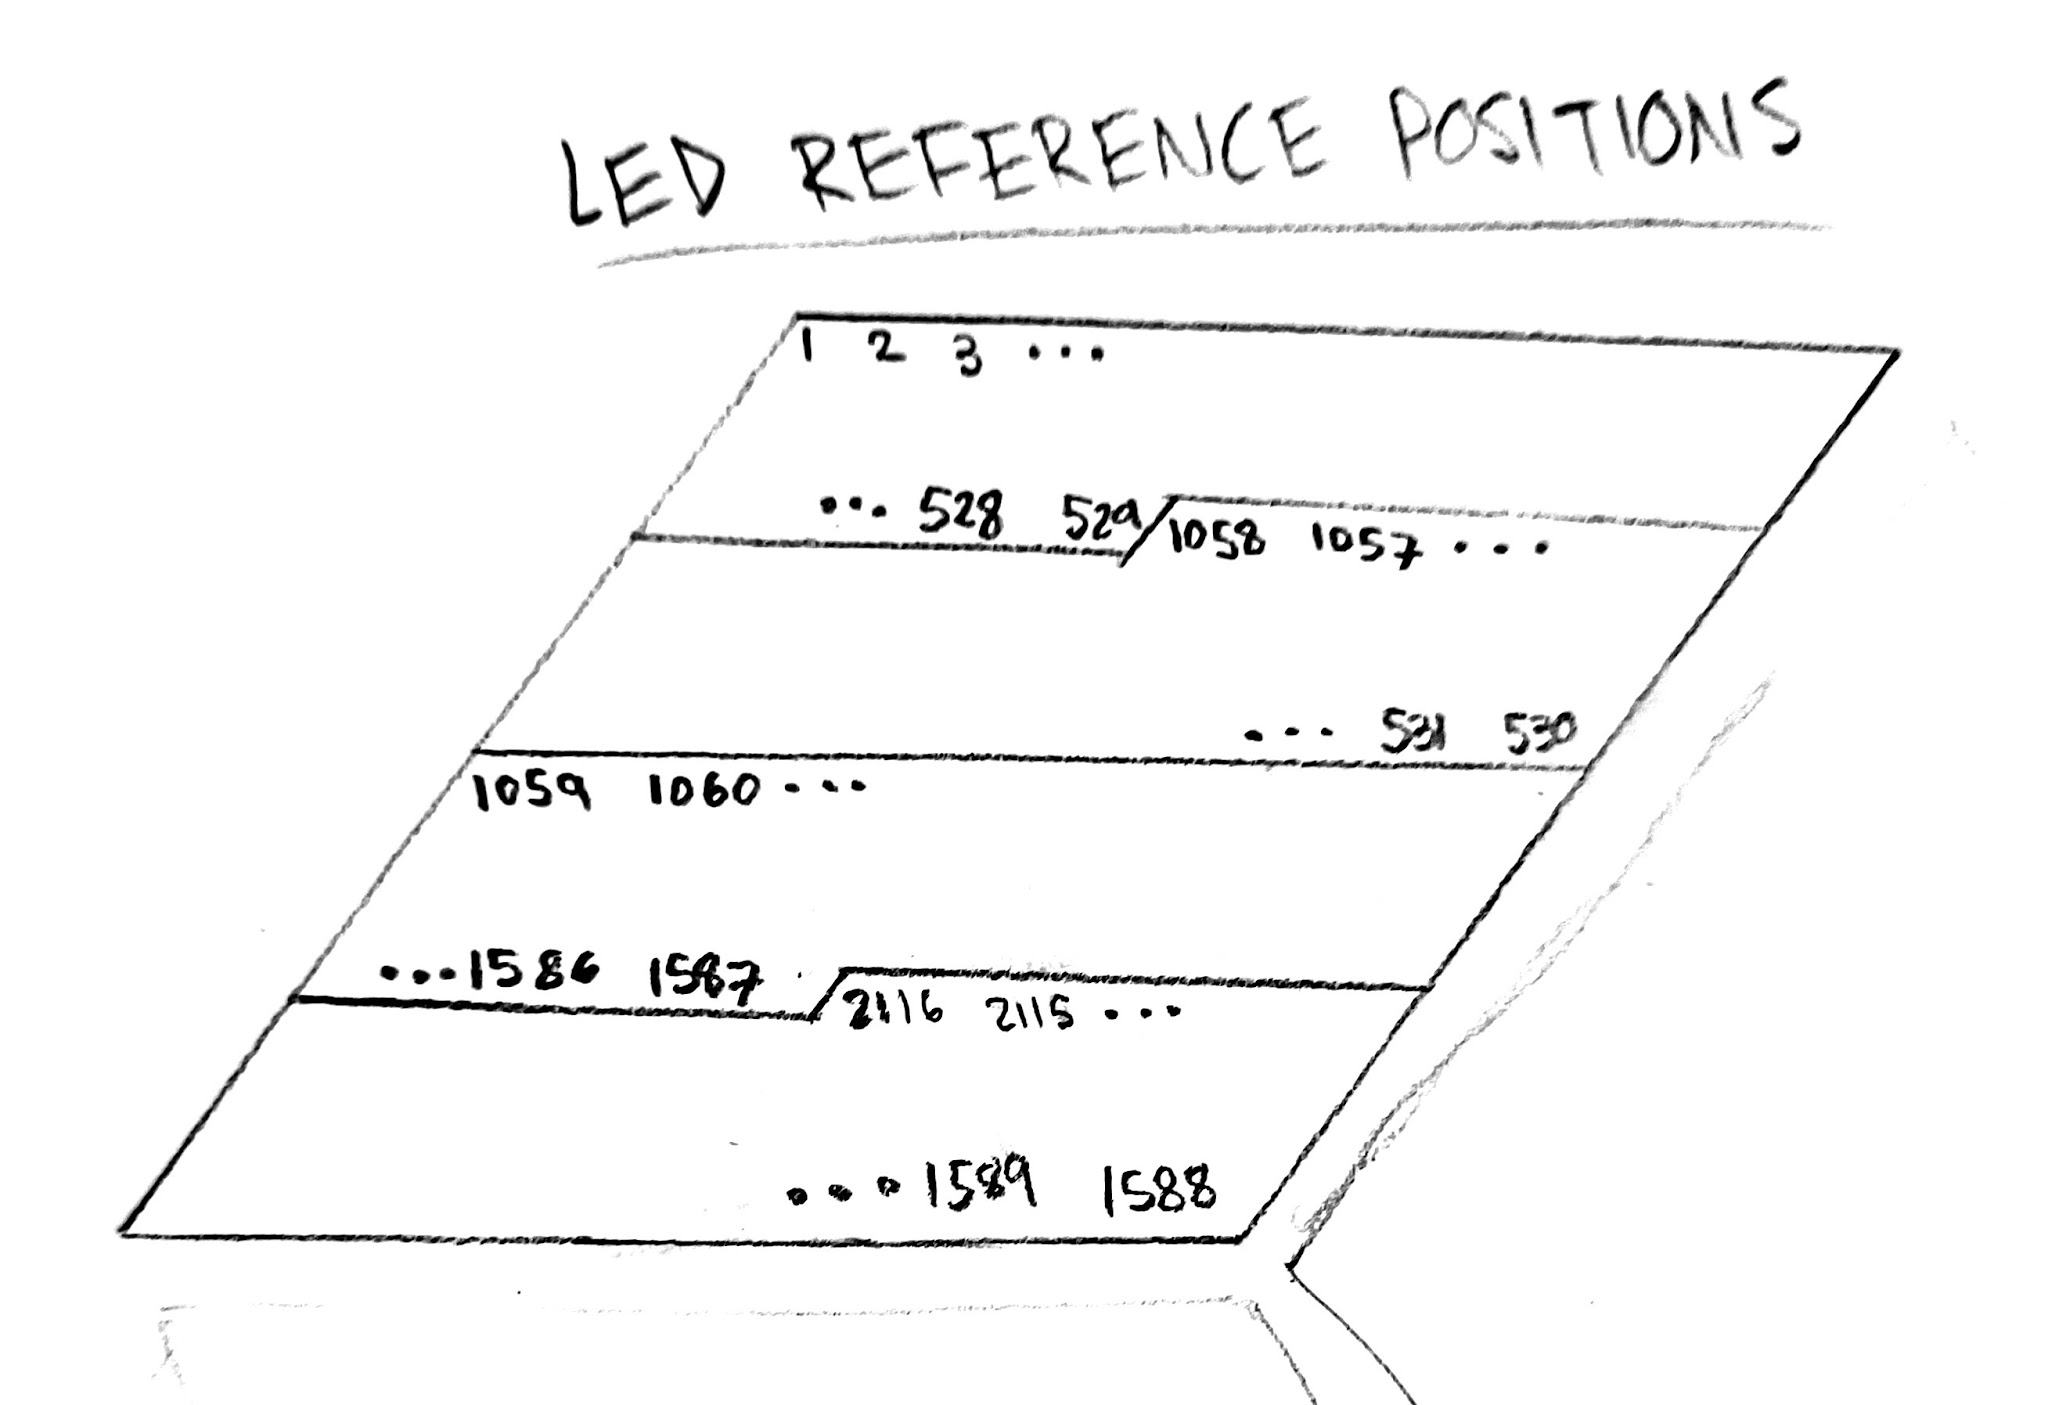 LED REFERENCE POSITIONS
1 2 3 ...
... 528 529 1058 1057 ...
... 531 530
1059 1060 ...
... 1586 1587 2116 2115 ...
... 1589 1588